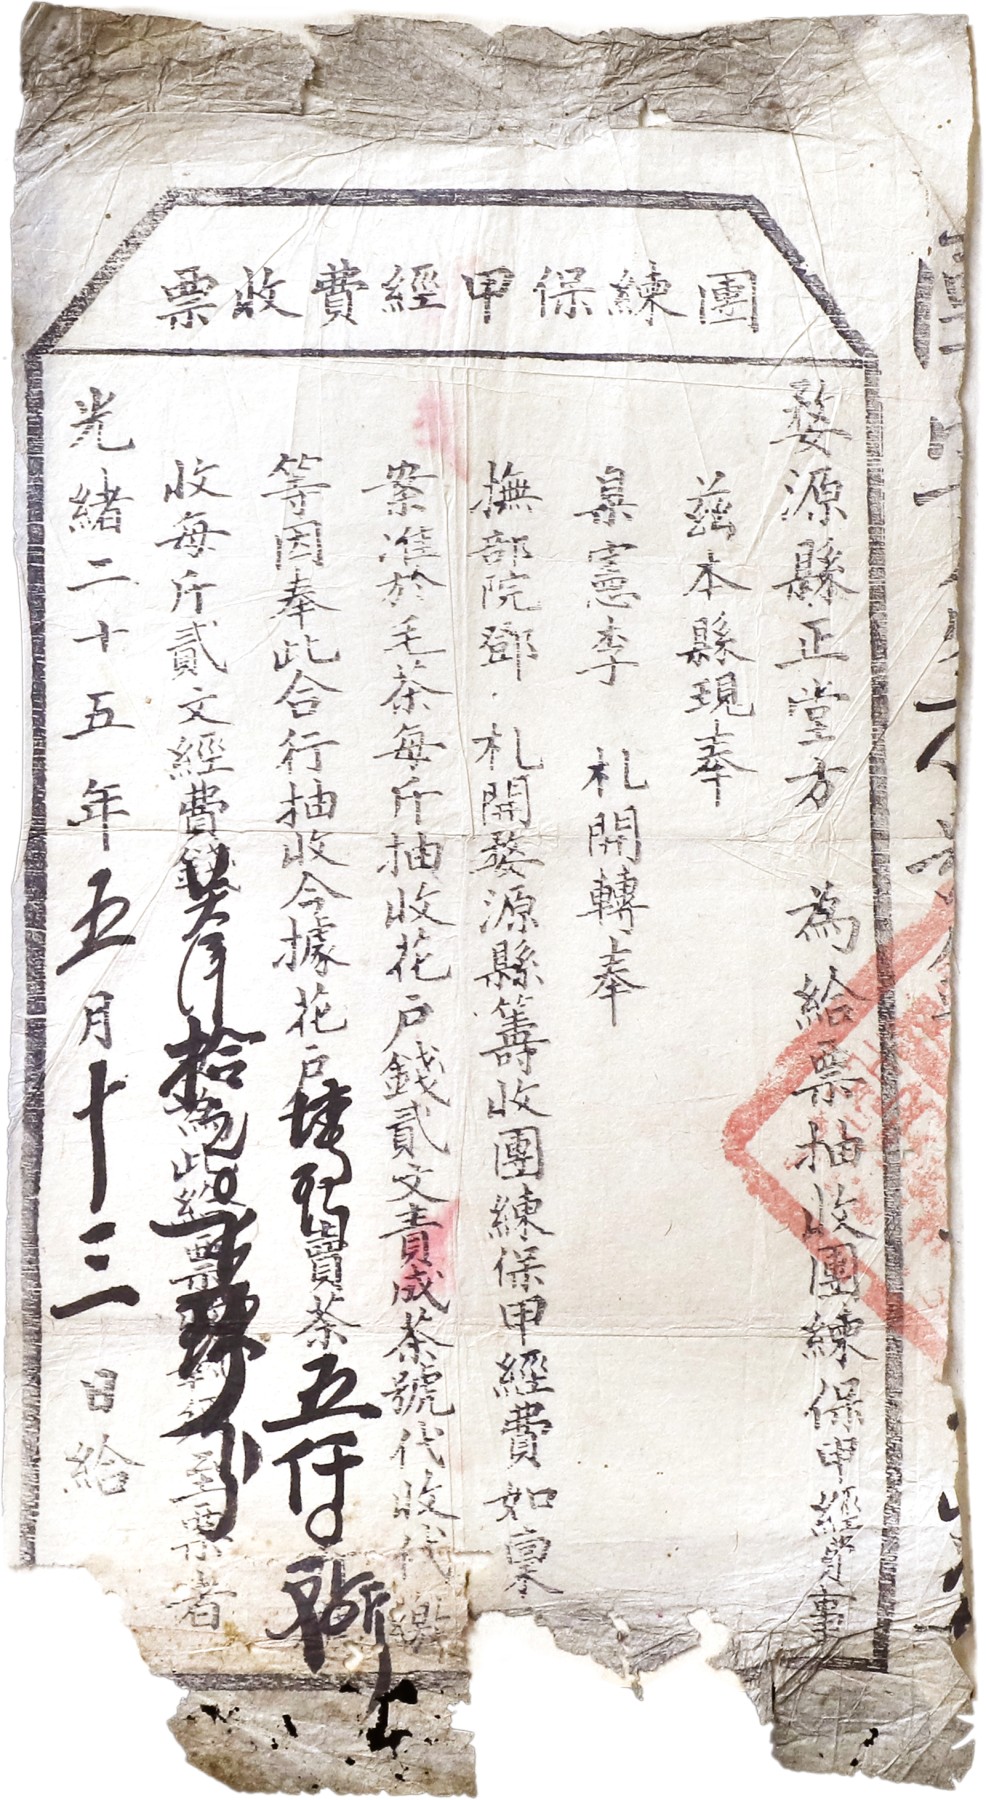 團練保甲經費收票
婺源縣正堂方 為給票抽收團練保甲經費事
茲本縣現奉
臬憲李 札開轉奉
撫部院鄧 札開婺源縣籌收團練保甲經費如稟
案准於毛茶每斤抽收花戶錢貳文責成茶號代收代繳
等因奉此合行抽收今據花戶 賣茶五仟
收每斤貳文經費錢 拾 此給票 至票者
光緒二十五年五月十三日給